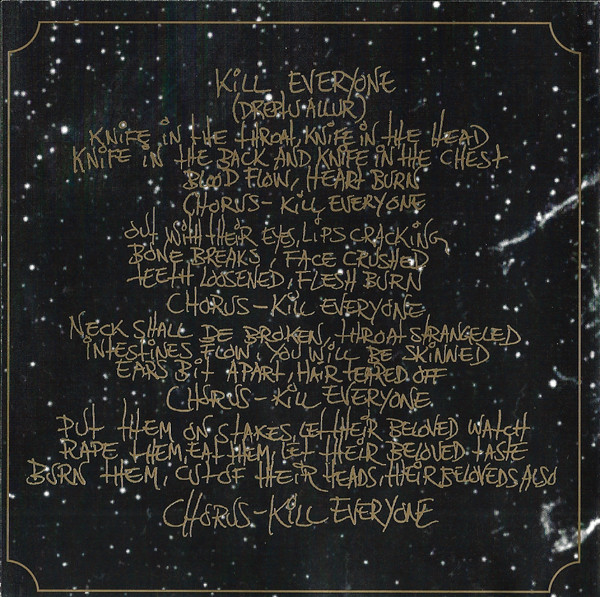 KILL EVERYONE
(DREPIÐ ALLUR)
KNIFE IN THE THROAT, KNIFE IN THE HEAD
KNIFE IN THE BACK AND KNIFE IN THE CHEST
BLOOD FLOW, HEART BURN
CHORUS - KILL EVERYONE
OUT WITH THEIR EYES, LIPS CRACKING
BONE BREAKS, FACE CRUSHED
TEETH LOOSENED, FLESH BURN
CHORUS - KILL EVERYONE
NECK SHALL BE BROKEN, THROAT STRANGELED
INTESTINES FLOW, YOU WILL BE SKINNED
EARS BIT APART, HAIR TEARED OFF
CHORUS - KILL EVERYONE
PUT THEM ON STAKES, LET THEIR BELOVED WATCH
RAPE THEM, EAT THEM, LET THEIR BELOVED TASTE
BURN THEM, CUT OF THEIR HEADS, THEIR BELOVEDS ALSO
CHORUS - KILL EVERYONE